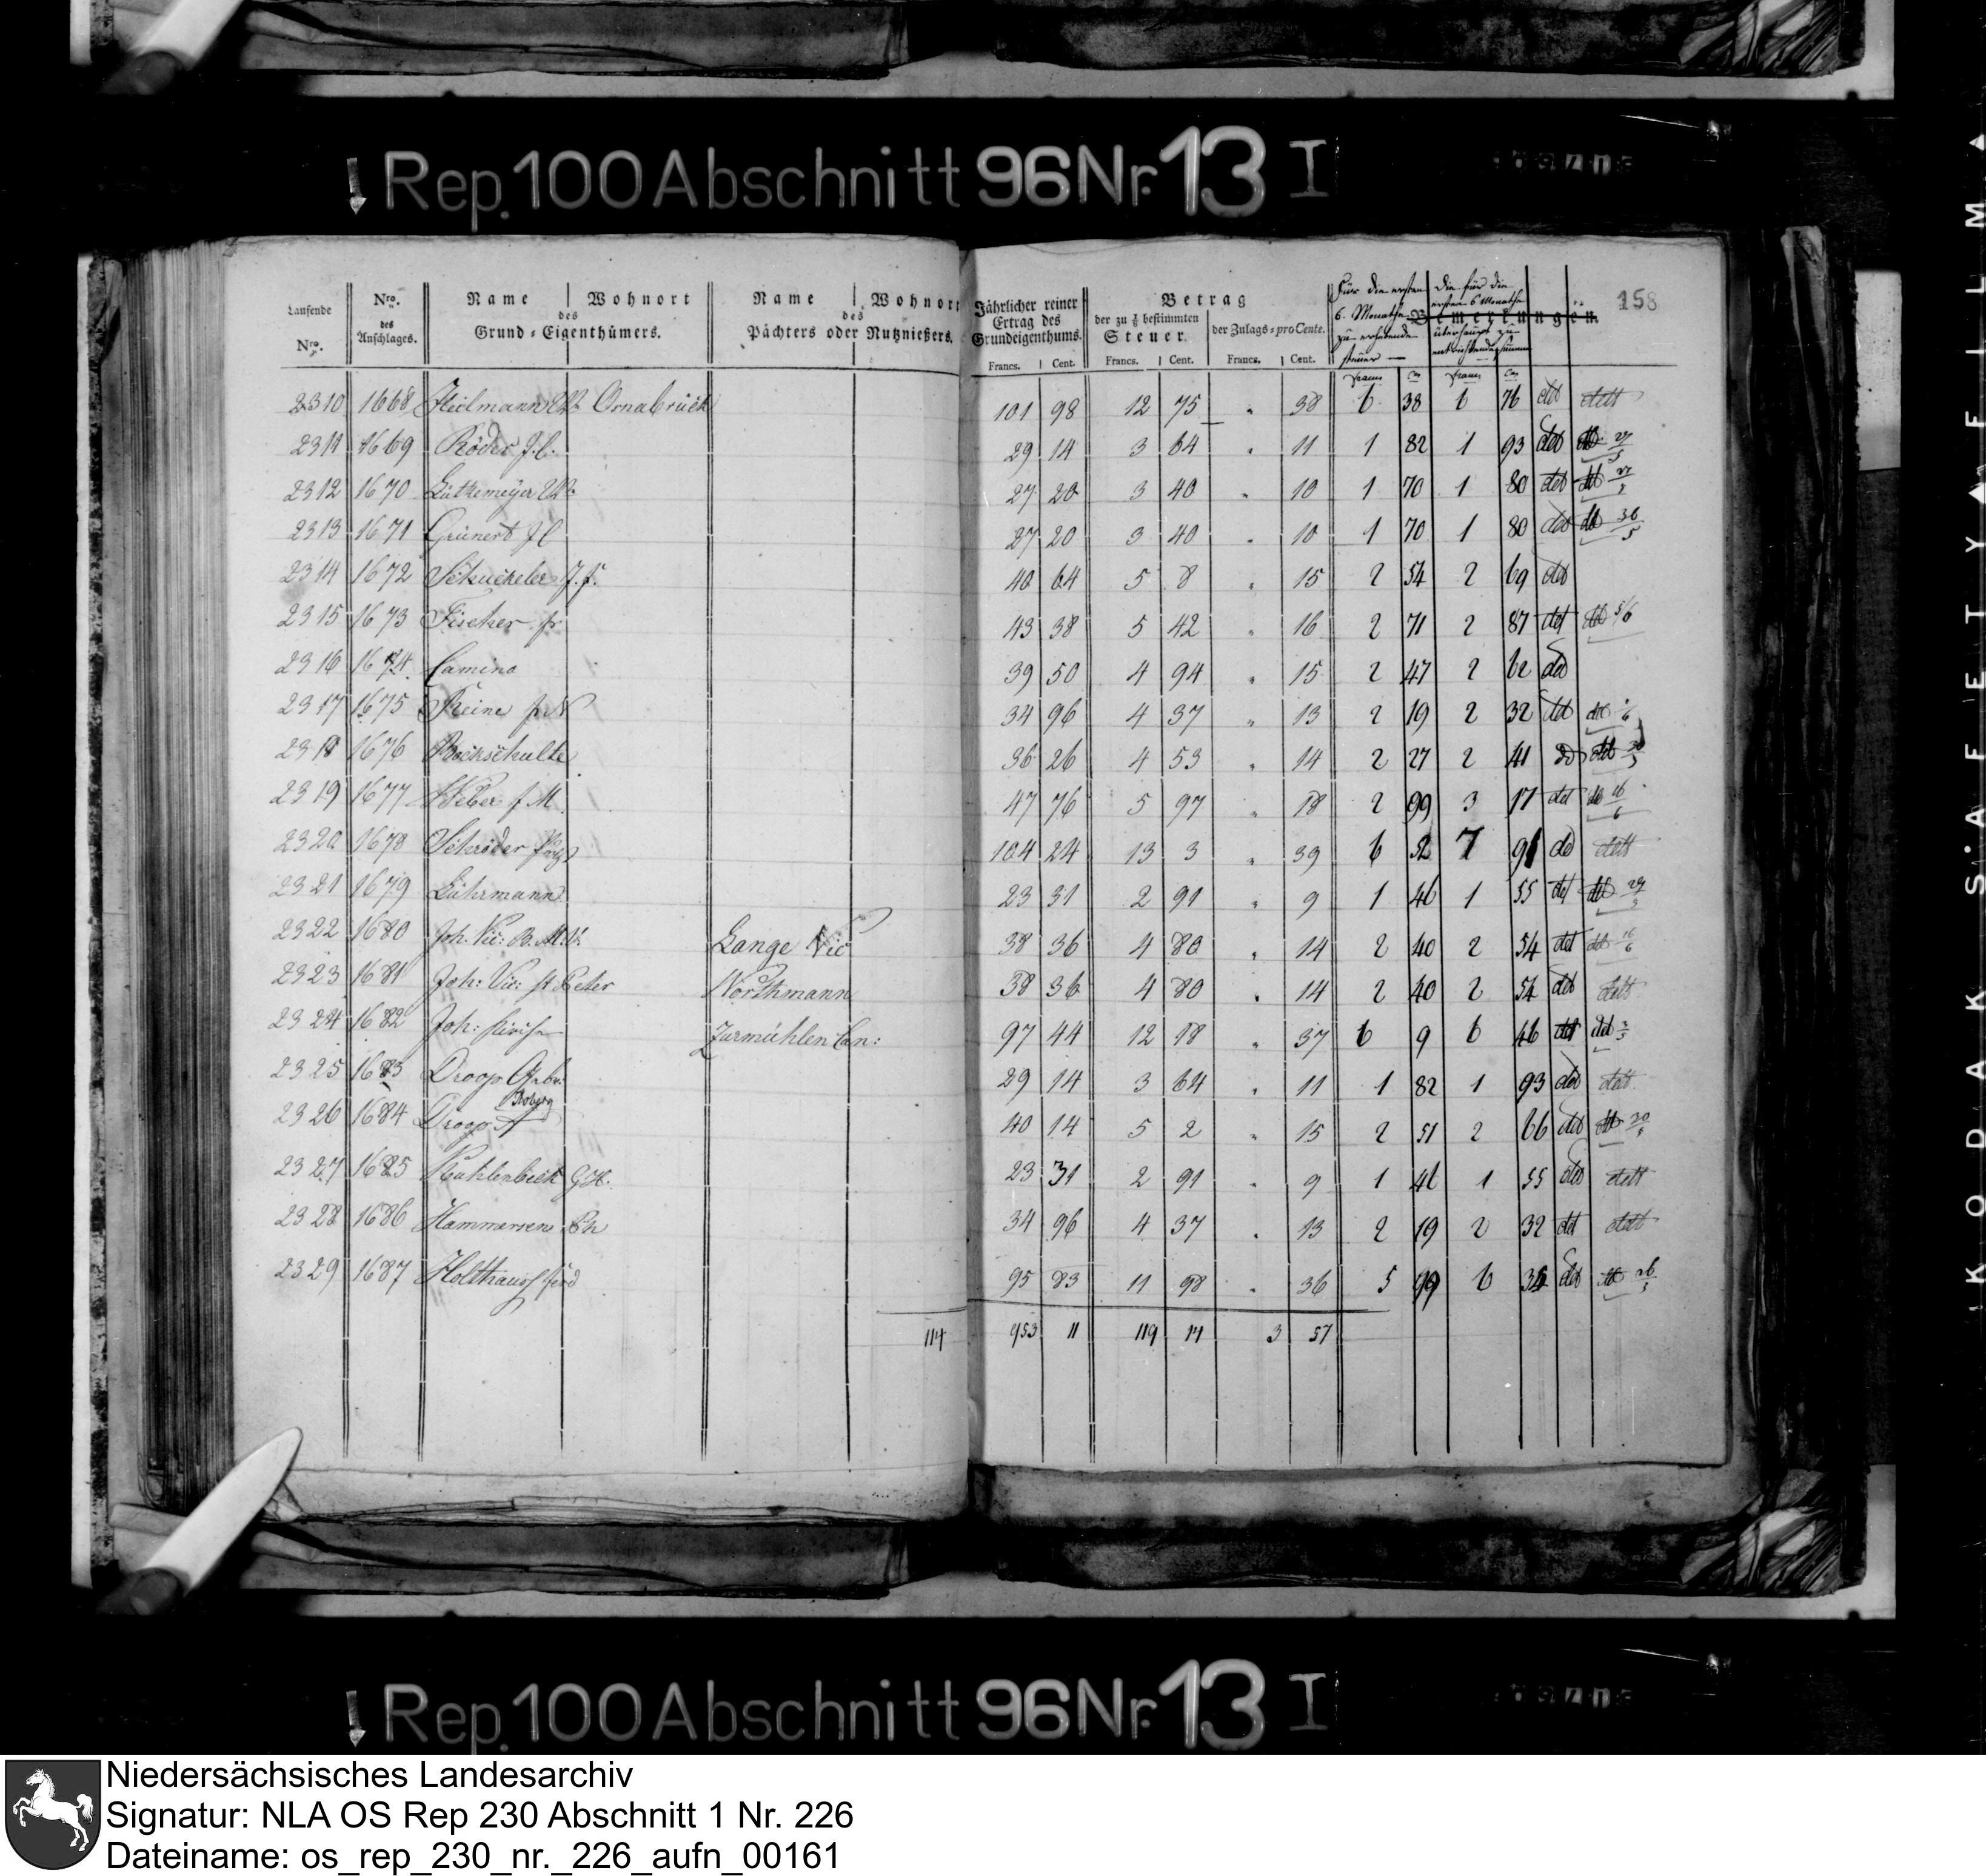 Rep. 100 Abschnitt 96 Nr. 13 I
158
Laufende Nro. | Nro. des Anschlages. | Name | Wohnort des Grund-Eigenthümers. | Name | Wohnort des Pächters oder Nutznießers. | Jährlicher reiner Ertrag des Grundeigenthums. Francs. Cent. | Betrag der zu 1/8 bestimmten Steuer. Francs. Cent. | der Zulags-proCente. Francs. Cent. | Für die ersten 6. Monathe zu erhebende Steuer | Die für die ersten 6 Monathe überhaupt zu entrichtende Summe | Bemerkungen.
2310 1668 Heilmann Ww Osnabrück 101 98 12 75 " 38 6 38 6 76 det dett
2311 1669 Röder J. C. 29 14 3 64 " 11 1 82 1 93 det
2312 1670 Lüthemeyer Ww 27 20 3 40 " 10 1 70 1 80 det
2313 1671 Grünert J C 27 20 3 40 " 10 1 70 1 80 det
2314 1672 Schuckeler J. F. 40 64 5 8 " 15 2 54 2 69 det
2315 1673 Fischer fr 43 38 5 42 " 16 2 71 2 87 det 5/6
2316 1674 Camino 39 50 4 94 " 15 2 47 2 62 det
2317 1675 Reine 34 96 4 37 " 13 2 19 2 32 det
2318 1676 Bockschulte 36 26 4 53 " 14 2 27 2 41 det
2319 1677 Weber f M. 47 76 5 97 " 18 2 99 3 17 det 16/6
2320 1678 Schröder 104 24 13 3 " 39 6 52 7 91 det dett
2321 1679 Lührmann 23 31 2 91 " 9 1 46 1 55 det
2322 1680 Joh. Vic: B. M. V. Lange Vic 38 36 4 80 " 14 2 40 2 54 det 16/6
2323 1681 Joh: Vic: st Peter Northmann 38 36 4 80 " 14 2 40 2 54 det dett
2324 1682 Joh: Kirche Zurmühlen Can: 97 44 12 18 " 37 6 9 6 46 det
2325 1683 Droop Gebr. 29 14 3 64 " 11 1 82 1 93 det dett
2326 1684 Droop A 40 14 5 2 " 15 2 51 2 66 det 30/5
2327 1685 Kuhlenbeck G H. 23 31 2 91 " 9 1 46 1 55 det dett
2328 1686 Hammersen 34 96 4 37 " 13 2 19 2 32 det dett
2329 1687 Holthaus ferd 95 83 11 98 " 36 5 99 6 35 det
114 953 11 119 14 3 57
Rep. 100 Abschnitt 96 Nr. 13 I
KODAK SAFETY FILM
Niedersächsisches Landesarchiv
Signatur: NLA OS Rep 230 Abschnitt 1 Nr. 226
Dateiname: os_rep_230_nr._226_aufn_00161